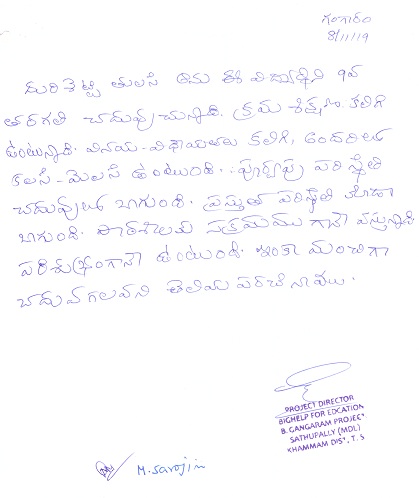 గంగారం
8/11/19
దురిశెట్టి తులసి అను ఈ విద్యార్థిని 9వ
తరగతి చదువుచున్నది. క్రమ శిక్షణ కలిగి
ఉంటున్నది. వినయ-విధాయతలు కలిగి, అందరితో
కలసి-మెలసి ఉంటుంది. పూర్వపు పరిస్థితి
చదువులో బాగుంది. ప్రస్తుత పరిస్థితి కూడా
బాగుంది. పాఠశాలకు సక్రమముగానే వస్తున్నది
పరిశుభ్రంగానే ఉంటుంది. ఇంకా మంచిగా
చదువగలవని తెలియ పరచినాము.
PROJECT DIRECTOR
BIGHELP FOR EDCATION
B. GANGARAM PROJECT
SATHUPALLY (MDL)
KHAMMAM DIST, T.S
M. Sarojini